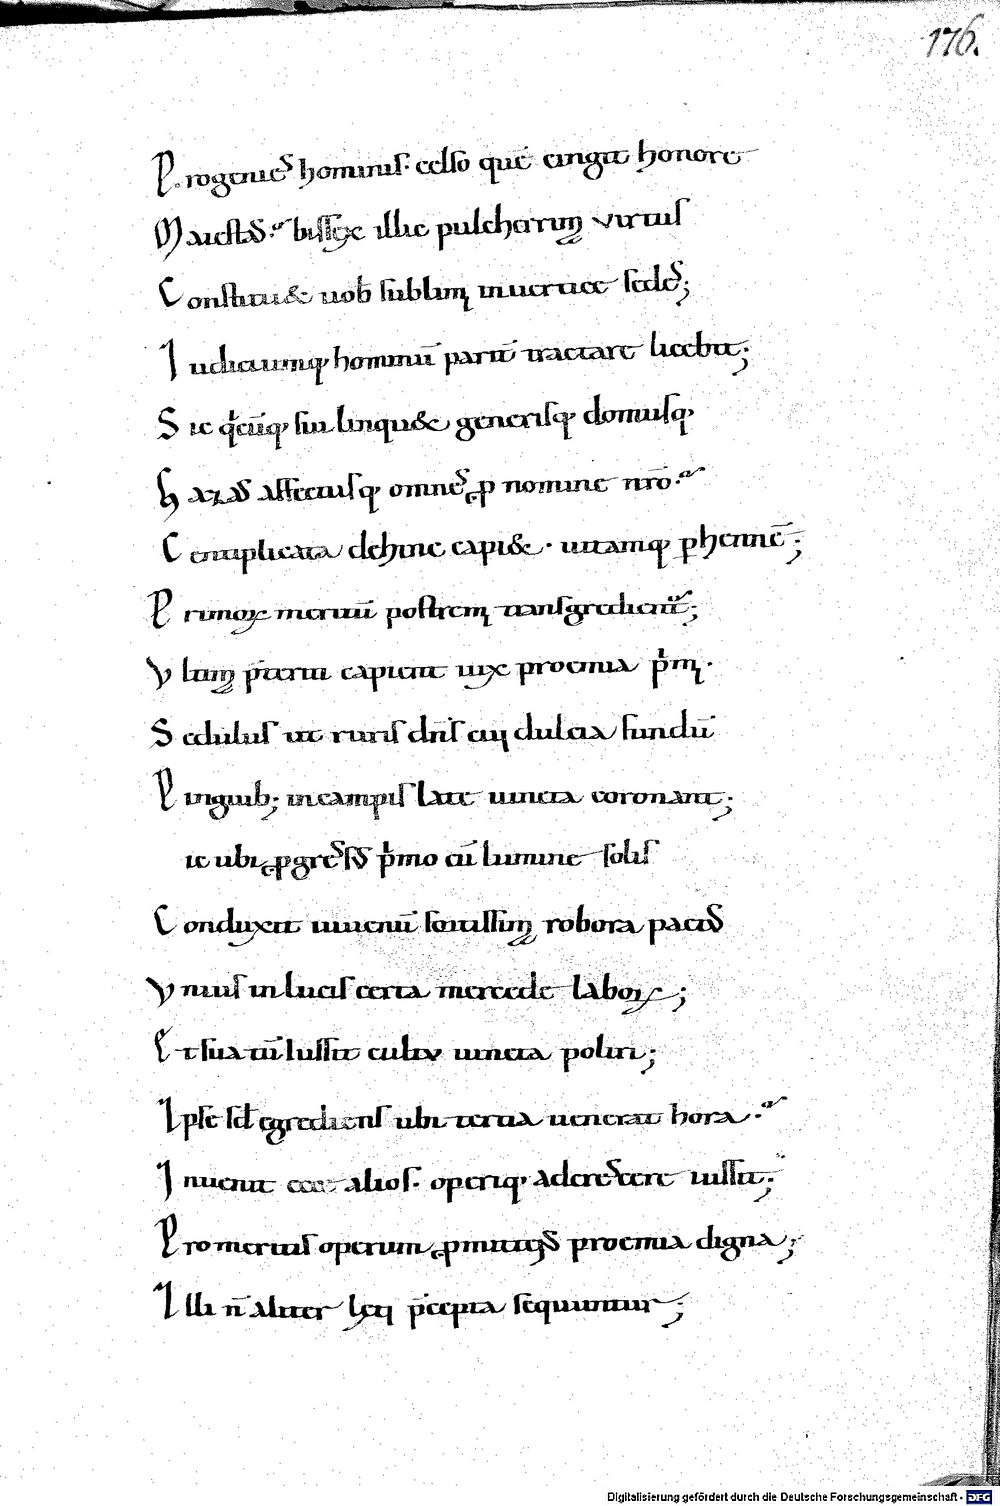 176.
Progenies hominis. celso quē cinget honore
Maiestas. bissex illic pulcherrimũ virtus
Constitu& uob sublimi inuertice sedes;
Iudiciumq; hominū paritū tractare licebit;
Sic q̇cūq; sua linqu& generisq; domusq;
hazas affectusq; omnes p nomine nr̄o.
Centuplicata dehinc capi&. uitamq; phennē;
Primox meritū postremi transgredient̃;
Vltimi p̄teriti capient uix proemia p̄mi.
Sedulus ut ruris dn̄s cui dulcia fundū
Pinguib; incampis late uineta coronant;
ic ubi pgressus p̄mo cū lumine solis
Conduxit iuuenū fortissimi robora pactus
Vnius inlucis certa mercede laboris;
Et sua tū iussit cultu uineta poliri;
Ipse sed egrediens ubi tertia uenerat hora.
Inuenit ecce alios. operiq; adcrescere iussit;
Promeritis operum pmittens proemia digna;
Illi n̄ aliter leti p̄cepta sequuntur;
Digitalisierung gefördert durch die Deutsche Forschungsgemeinschaft - DFG